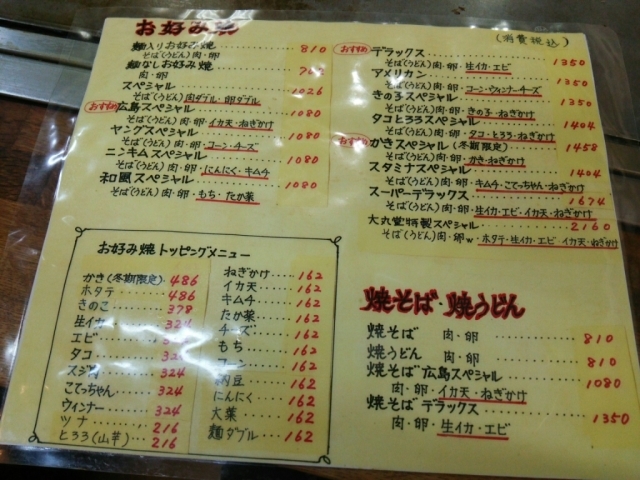 お好み焼
麺入りお好み焼 810
そば(うどん)肉・卵
麺なしお好み焼
肉・卵
スペシャル 1026
そば(うどん)肉ダブル・卵ダブル
おすすめ 広島スペシャル 1080
そば(うどん)肉・卵・イカ天・ねぎかけ
ヤングスペシャル 1080
そば(うどん)肉・卵・コーン・チーズ
ニンキムスペシャル 1080
そば(うどん)肉・卵・にんにく・キムチ
和風スペシャル 1080
そば(うどん)肉・卵・もち・たか菜
(消費税込)
おすすめ デラックス 1350
そば(うどん)肉・卵・生イカ・エビ
アメリカン 1350
そば(うどん)肉・卵・コーン・ウィンナー・チーズ
きの子スペシャル 1350
そば(うどん)肉・卵・きの子・ねぎかけ
タコとろろスペシャル 1404
そば(うどん)肉・卵・タコ・とろろ・ねぎかけ
かきスペシャル(冬期限定) 1458
そば(うどん)肉・卵・かき・ねぎかけ
スタミナスペシャル 1404
そば(うどん)肉・卵・キムチ・こてっちゃん・ねぎかけ
スーパーデラックス 1674
そば(うどん)肉・卵・生イカ・エビ・イカ天・ねぎかけ
大丸堂特製スペシャル 2160
そば(うどん)肉・卵w・ホタテ・生イカ・エビ イカ天・ねぎかけ
お好み焼トッピングメニュー
かき(冬期限定) 486
ホタテ 486
きのこ 378
生イカ 324
エビ 324
タコ 324
スジ肉 324
こてっちゃん 324
ウィンナー 324
ツナ 216
とろろ(山芋) 216
ねぎかけ 162
イカ天 162
キムチ 162
たか菜 162
チーズ 162
もち 162
コーン 162
納豆 162
にんにく 162
大葉 162
麺ダブル 162
焼そば・焼うどん
焼そば 肉・卵 810
焼うどん 肉・卵 810
焼そば広島スペシャル 1080
肉・卵・イカ天・ねぎかけ
焼そばデラックス 1350
肉・卵・生イカ・エビ